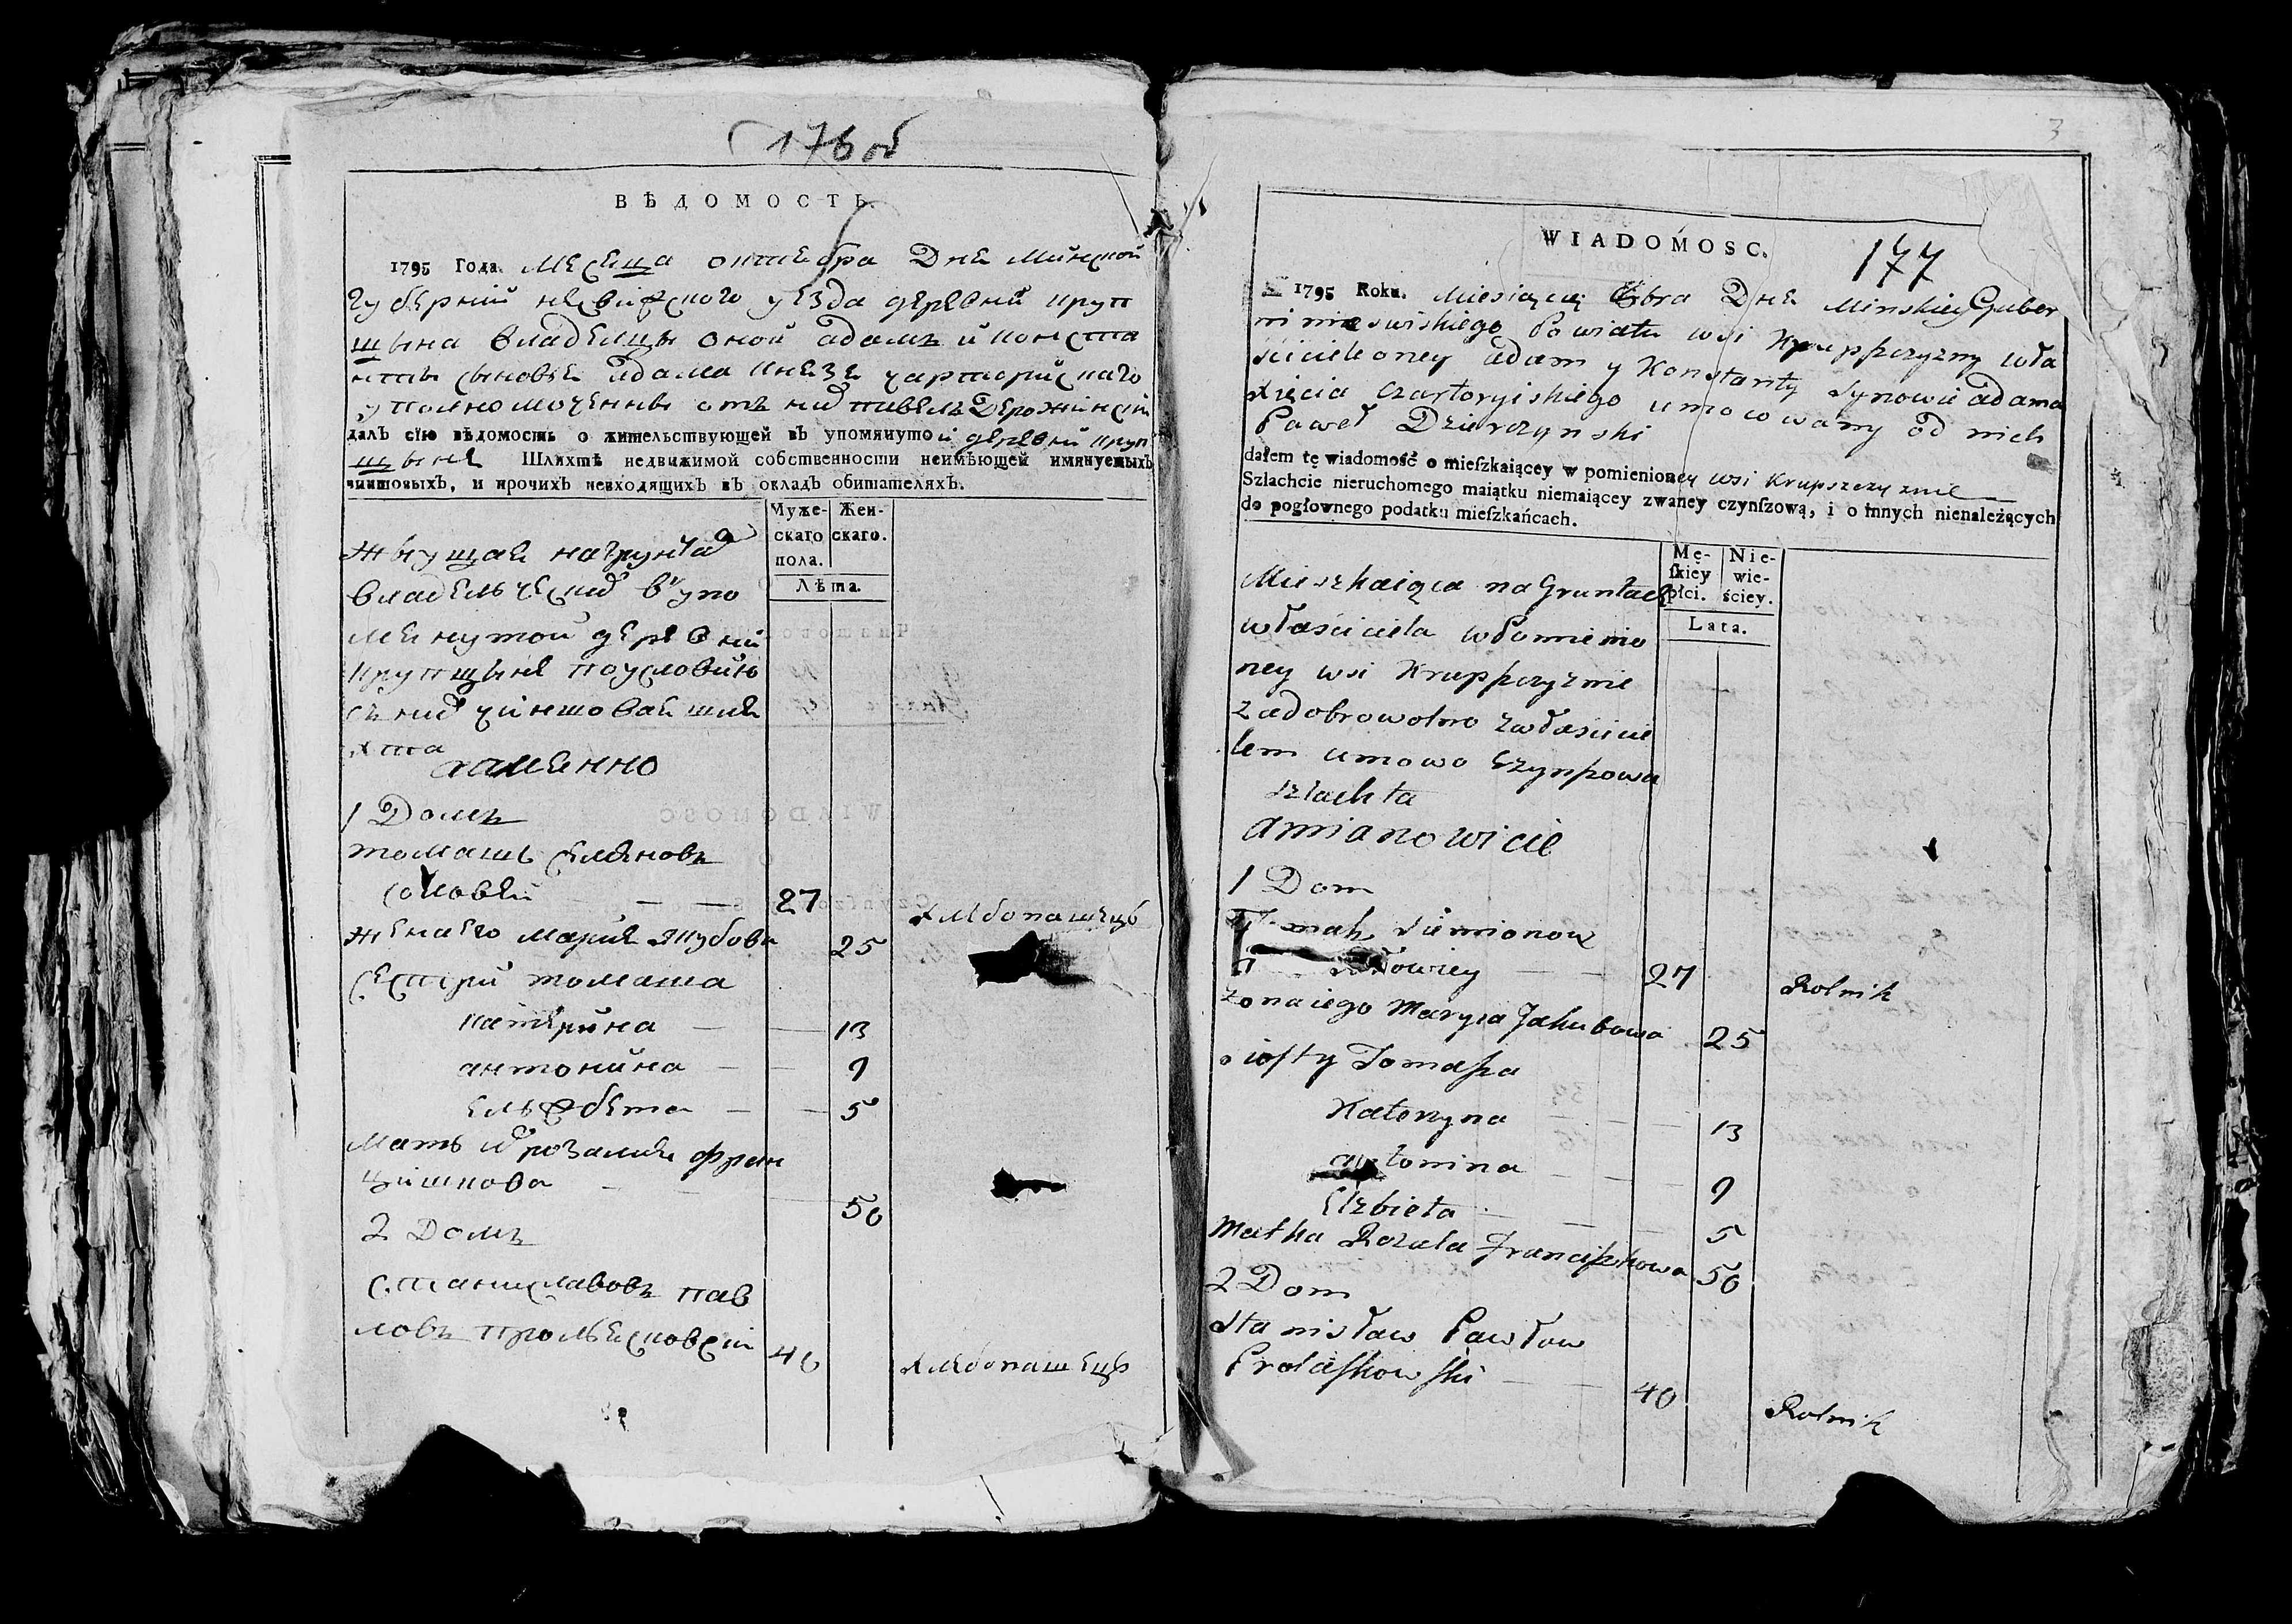 176 об
ВѢДОМОСТЬ.
1795 Года. Месеца октебра Дне Минской
губерний несвижского уезда деревни круп
щына владельцы оной адамъ и конста
нты сыновъе адама кнезе чарторискаго
уполномоченны отъ них павелъ Держинский
далъ сїю вѣдомость о жительствующей въ упомянутой деревни круп
щыне Шляхтѣ недвижимой собственности неимѣющей имянуемыхъ
чиншовыхъ, и прочихъ невходящихъ въ окладъ обитателяхъ.
Муже- Жен-
скаго скаго.
пола.
Лѣта.
жывущая на грунтах
владельческих в упо
менутой деревни
крупщыне по условию
съ них чиншовая шля
хта
а именно
1 Домъ
томашъ семеновъ
соловей — — 27 хлебопашецъ
жена его марие якубова 25
сестры томаша
катерина — — 13
антонина — — 9
ельжбета — — 5
мать их розалие фран
цишкова — — 50
2 Домъ
станиславовъ пав
ловъ 40 хлебопашецъ
3
WIADOMOSC.
177
1795 Roku. Miesiąca 8bra Dne Minskiey Guber
ni nieswiskiego Powiatu wsi Krupszczyzny wła
sciciele oney adam y Konstanty synowie adama
xięcia czartoryiskiego umocowany od nich
Paweł Dzierzynski
dałem tę wiadomość o mieſzkaiącey w pomienioney wsi Krupszczyznie
Szlachcie nieruchomego maiątku niemaiącey zwaney czynſzową, i o innych nienależących
do pogłownego podatku mieſzkańcach.
Mę- Nie-
ſkiey wie-
płci. ściey.
Lata.
Mieszkaiąca na Gruntach
właściciela w Pomienio
ney wsi Krupszczyznie
za dobrowolno z właścicie
lem umowo Czynszowa
szlachta
amianowicie
1 Dom
siemionow
27 Rolnik
żona iego Maryia Jakubowa 25
siostry Tomasza
Katerzyna — — 13
antonina — — 9
Elzbieta — — 5
Matka Rozala Franciszkowa 50
2 Dom
Stanisław Pawłow
Prolaskowski — — 40 Rolnik